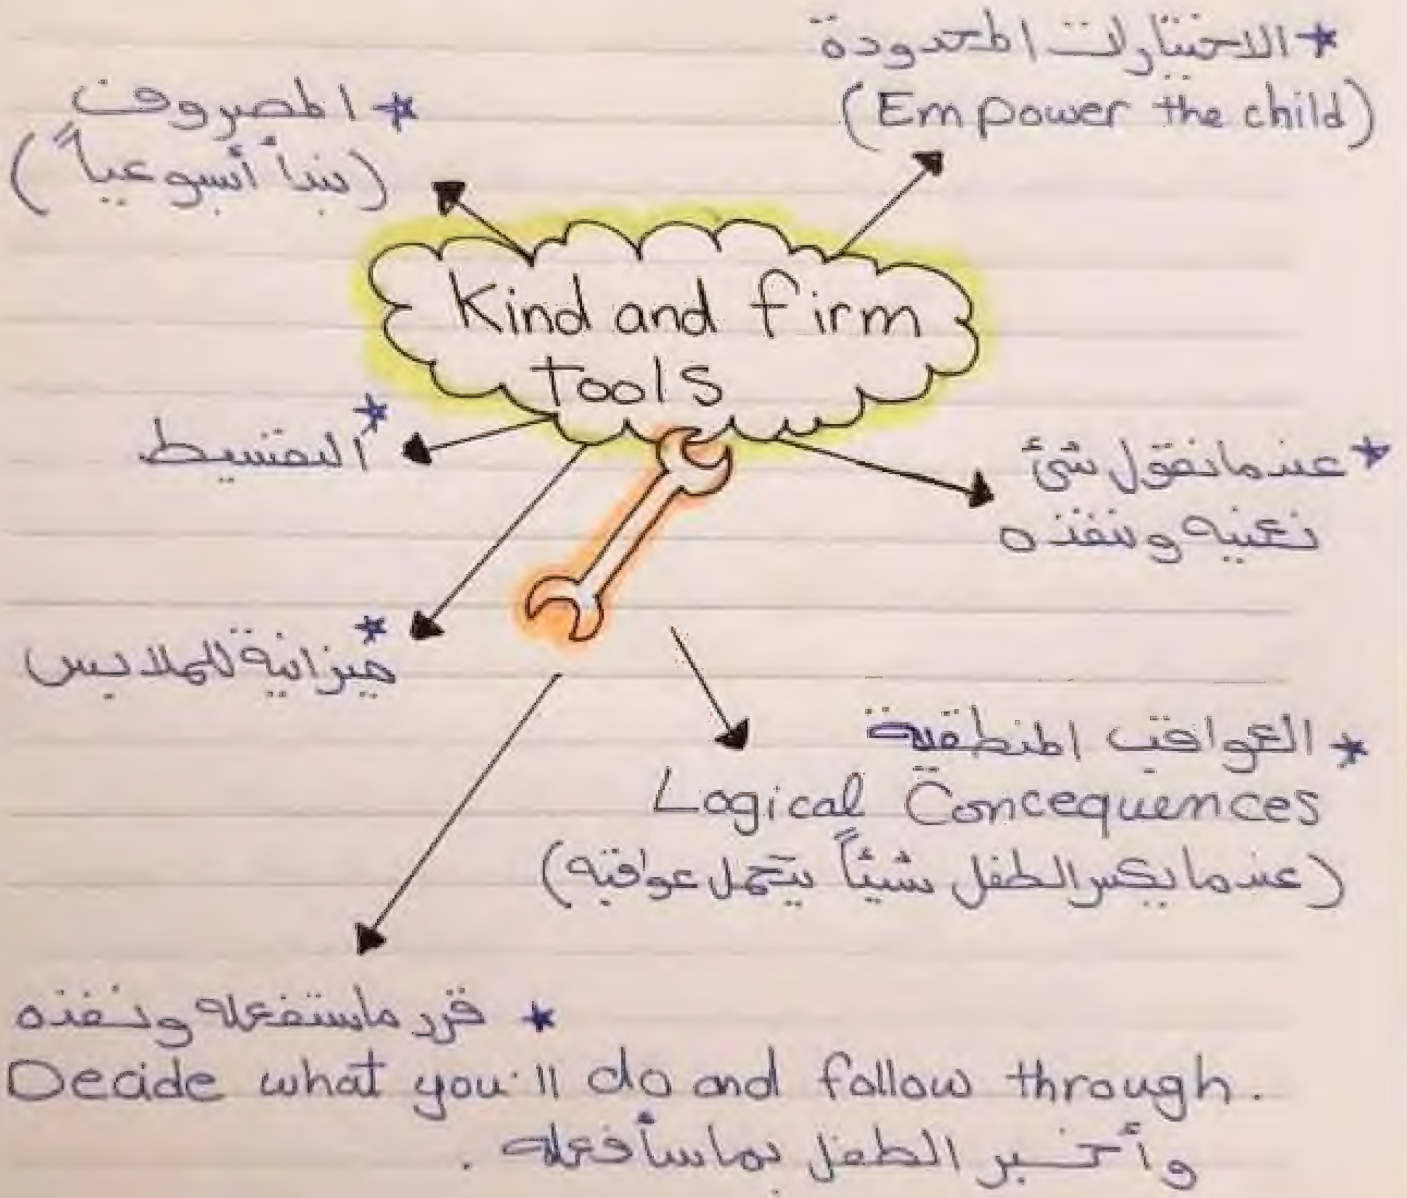 * الاختيارات المحدودة
(Empower the child)
* المصروف
(نبدأ أسبوعياً)
Kind and firm
tools
* التقسيط
* عندما نقول شئ
نعنيه وننفذه
* ميزانية للملابس
* العواقب المنطقية
Logical Concequences
(عندما يكسر الطفل شيئاً يتحمل عواقبه)
* قرر ما ستفعله ونفذه
Decide what you'll do and follow through.
وأخبر الطفل بما سأفعله .